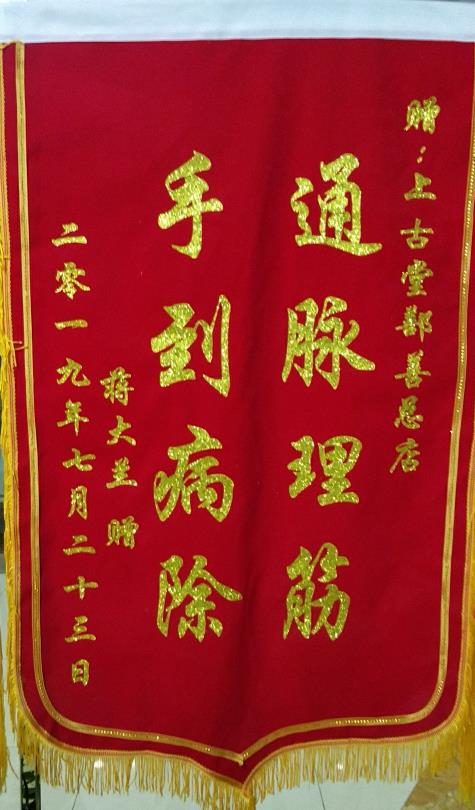 赠：上古堂郑善恩店
通脉理筋
手到病除
蒋大兰赠
二零一九年七月二十三日